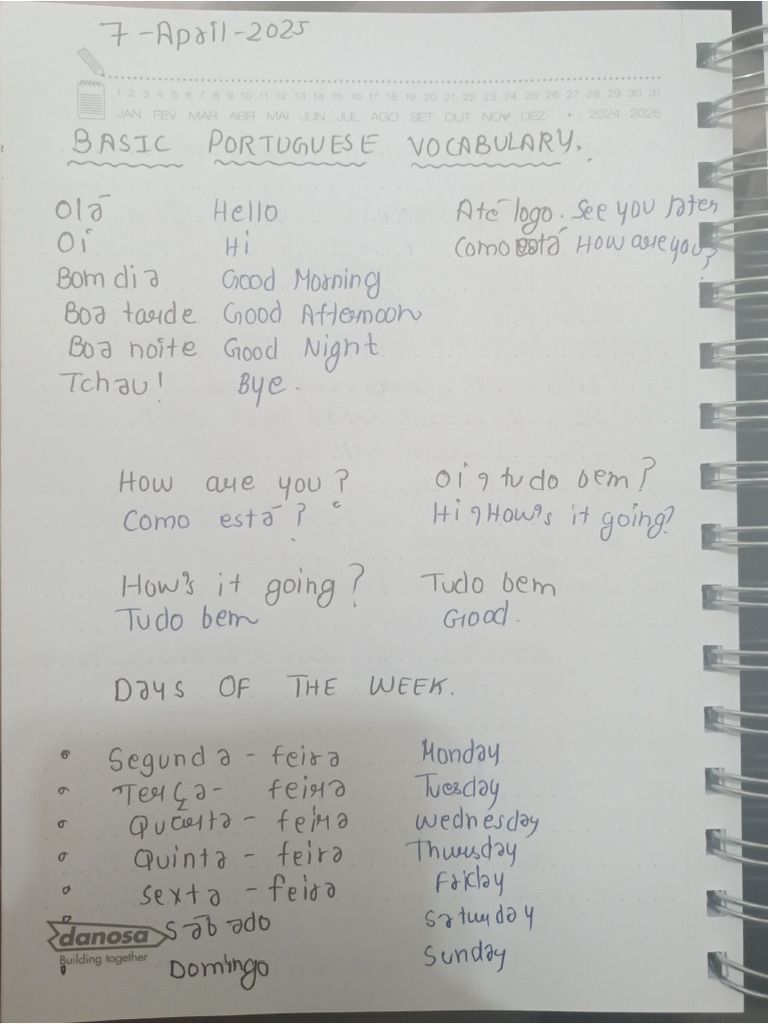 7-April-2025
1 2 3 4 5 6 7 8 9 10 11 12 13 14 15 16 17 18 19 20 21 22 23 24 25 26 27 28 29 30 31
JAN FEV MAR ABR MAI JUN JUL AGO SET OUT NOV DEZ • 2024 2025
BASIC PORTUGUESE VOCABULARY.
Olá Hello Até logo. See you later
Oi Hi Como está How are you?
Bom dia Good Morning
Boa tarde Good Afternoon
Boa noite Good Night
Tchau! Bye.
How are you? Oi, tudo bem?
Como está? Hi, How's it going?
How's it going? Tudo bem
Tudo bem Good.
DAYS OF THE WEEK.
• Segunda - feira Monday
• Terça - feira Tuesday
• Quarta - feira Wednesday
• Quinta - feira Thursday
• Sexta - feira Friday
• Sábado Saturday
danosa
Building together
• Domingo Sunday